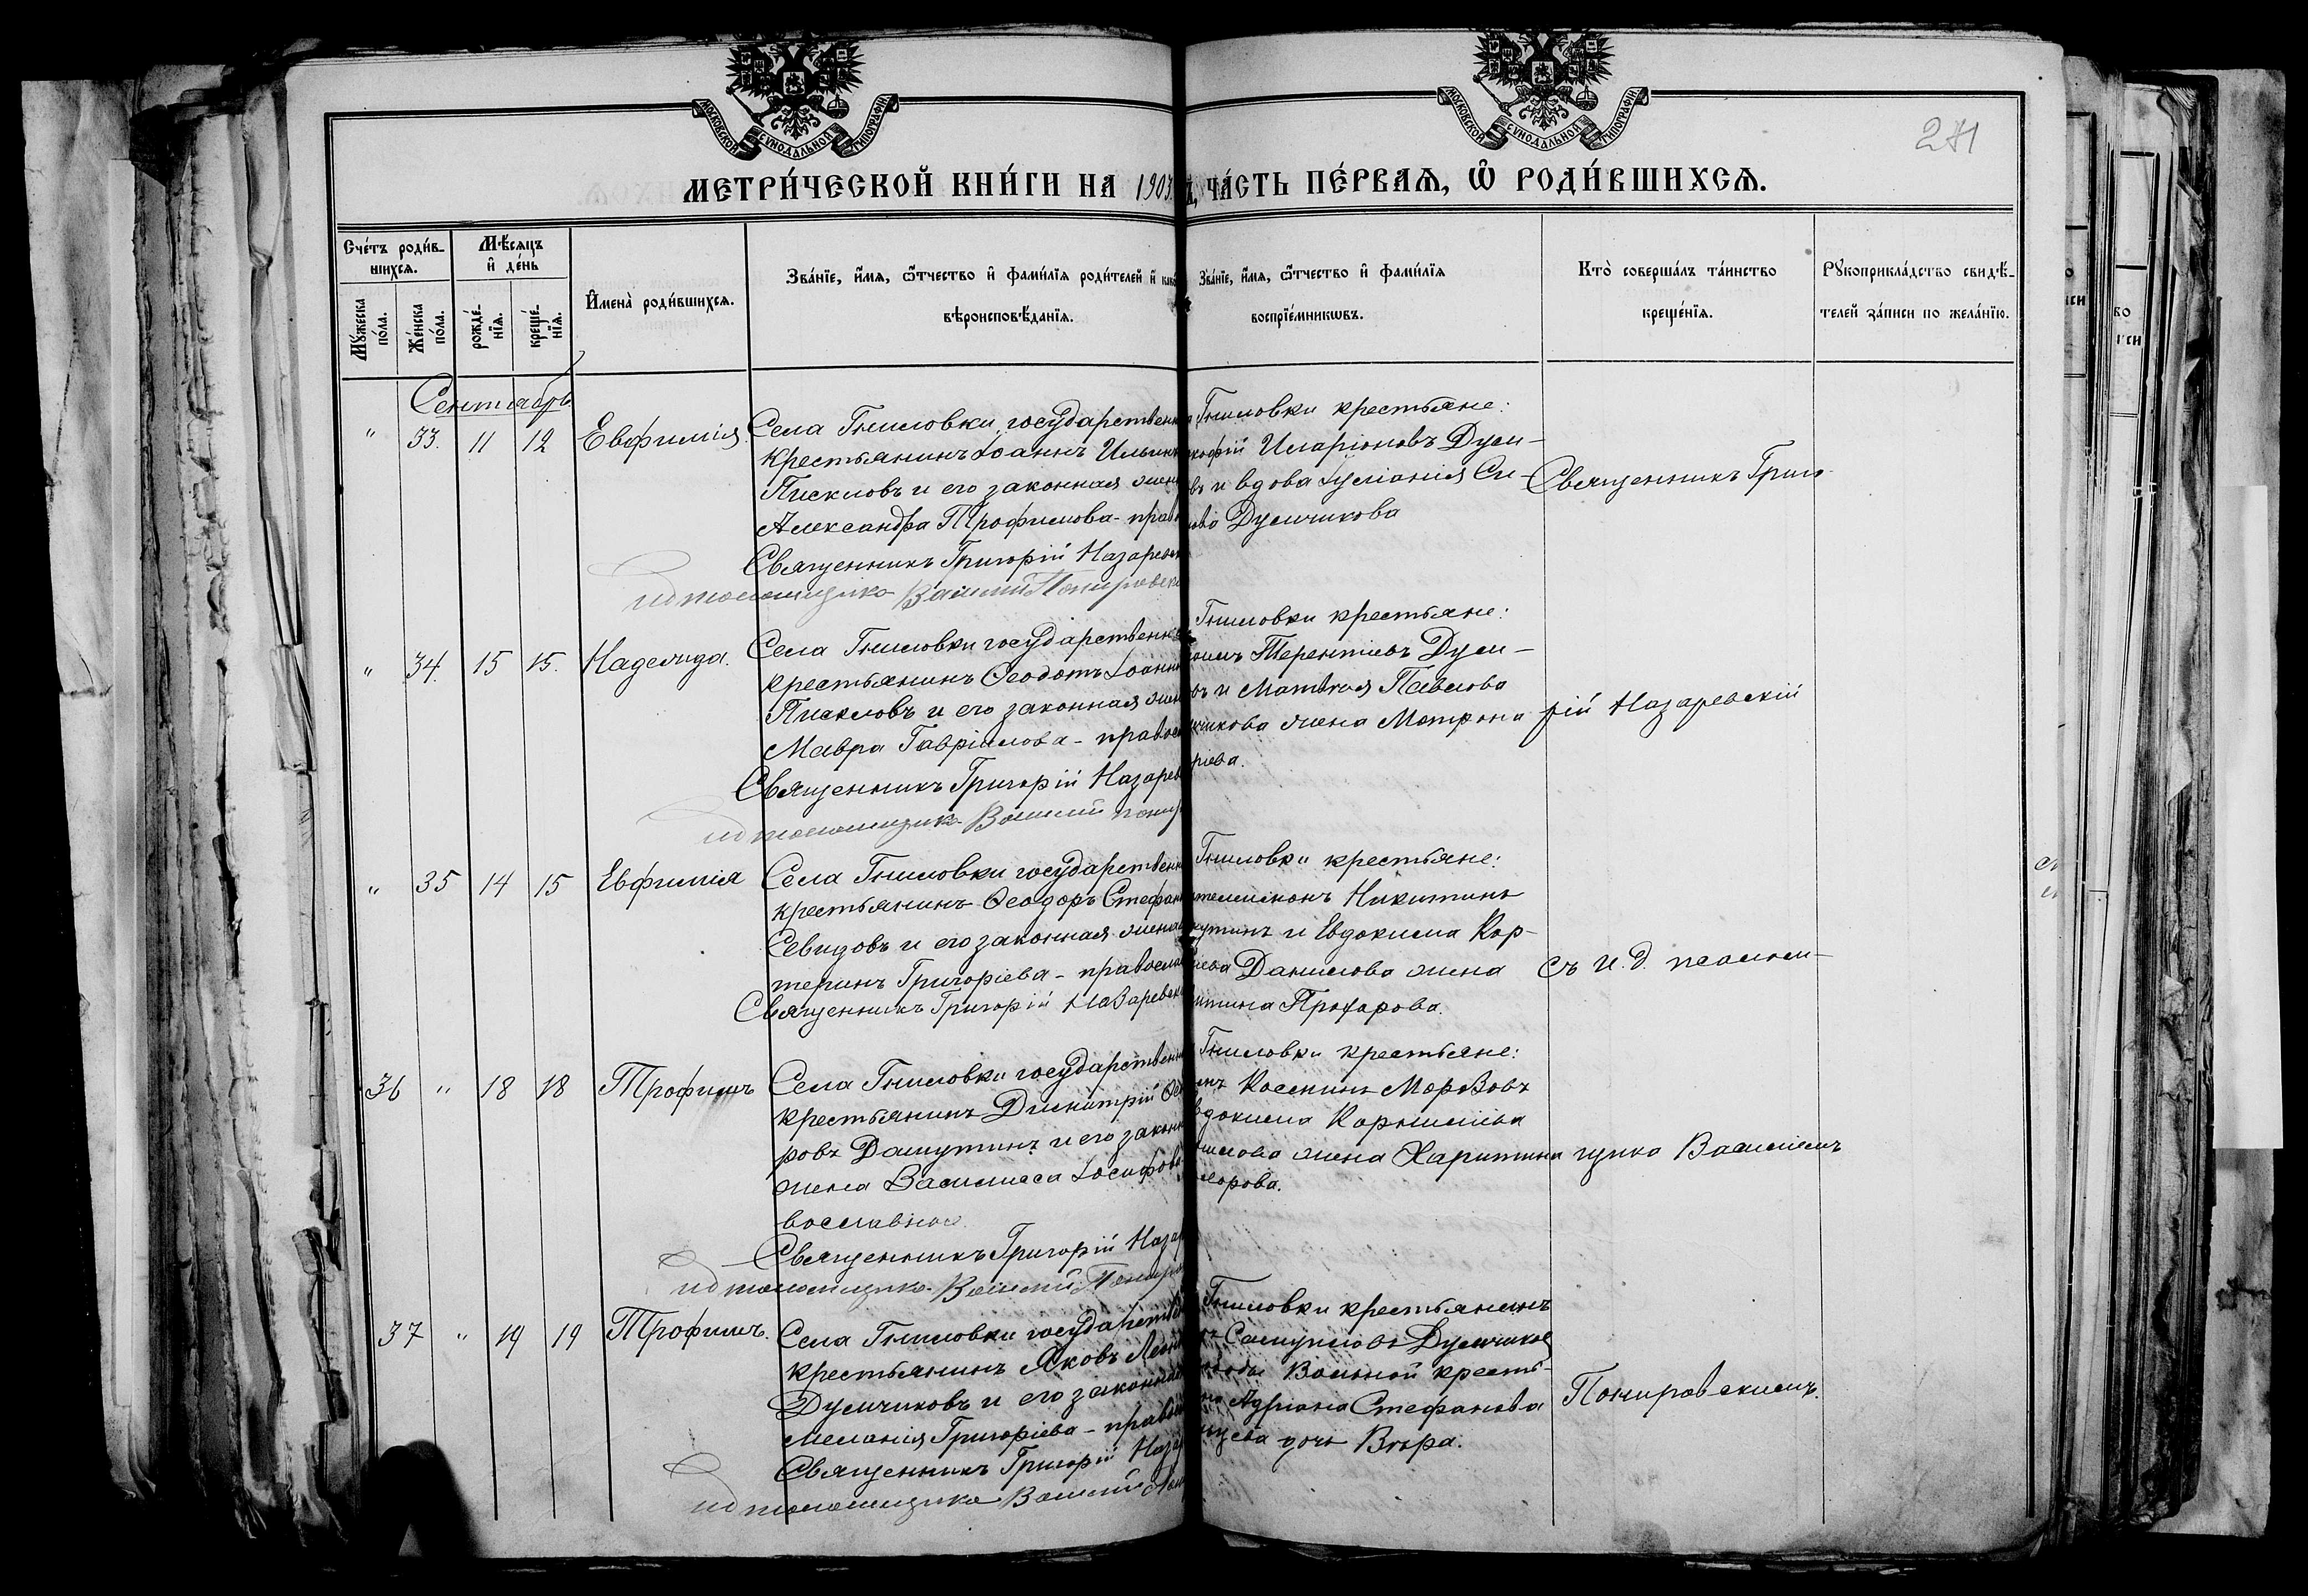 МОСКОВСКОЙ СѴНОДАЛЬНОЙ ТИПОГРАФІИ
МОСКОВСКОЙ СѴНОДАЛЬНОЙ ТИПОГРАФІИ
271
МЕТРИ́ЧЕСКОЙ КНИ́ГИ НА 1903
ЧА́СТЬ ПЕ́РВАѦ, Ѡ҆ РОДИ́ВШИХСѦ.
Сче́тъ роди́в-
шихсѧ.
Мѣ́сѧцъ
и҆ де́нь
Мꙋ́жеска
по́ла.
Же́нска
по́ла.
рожде́-
нїѧ.
креще́-
нїѧ.
И҆мена̀ роди́вшихсѧ.
Зва́нїе, и҆́мѧ, ѻ҆́тчество и҆ фами́лїѧ роди́телей и҆
вѣроисповѣ́данїѧ.
Зва́нїе, и҆́мѧ, ѻ҆́тчество и҆ фами́лїѧ
воспрїе́мникѡвъ.
Кто̀ соверша́лъ та́инство
креще́нїѧ.
Рꙋкоприкла́дство свидѣ́-
телей за́писи по жела́нїю.
Сентябрь
" 33. 11 12 Евфимія
Села Гниловки, государствен
крестьянинъ Іоаннъ Ильинъ
Пискловъ и его законная жена
Александра Трофимова - прав
Священникъ Григорій Назаревск
ид псаломщика Василій Поныровск
Гниловки крестьяне:
кофій Иларіоновъ Дули-
въ и вдова Іуліанія Си-
нова Дуличикова
Священникъ Григо-
" 34. 15 15. Надежда.
Села Гниловки государственн
крестьянинъ Ѳеодотъ Іоанн
Пискловъ и его законная жен
Мавра Гавріилова - правос
Священникъ Григорій Назарев
ид псаломщика Василій Поныр
Гниловки крестьяне:
Терентіевъ Дули-
въ и Матвея Павлова
чикова жена Матрона
ріева.
рій Назаревскій
" 35 14 15 Евфимія
Села Гниловки государственн
крестьянинъ Ѳеодоръ Стефан
Севидовъ и его законная жена
терина Григоріева - православ
Священникъ Григорій Назаревск
Гниловки крестьяне:
Никитинъ
и Евдокима Кор-
Данилова жена
Прохорова.
съ и. д. псалом-
36 " 18 18 Трофимъ
Села Гниловки государственн
крестьянинъ Димитрій Ѳео
ровъ Дашутинъ и его законн
жена Василисса Іосифова
вославные.
Священникъ Григорій Назар
ид псаломщика Василій Поныро
Гниловки крестьяне:
Косминъ Морозовъ
вдокима Корнильева
нилова жена Харитина
хорова.
щика Василіемъ
37 " 19 19 Трофимъ.
Села Гниловки государств
крестьянинъ Яковъ Леон
Дуличиковъ и его законная
Меланія Григоріева - правос
Священникъ Григорій Наза
ид псаломщика Василій Пон
Гниловки крестьянинъ
Самуиловъ Дуличиков
слободы Вольной кресть-
Адріана Стефанова
дочь Вѣра.
Поныровскимъ.